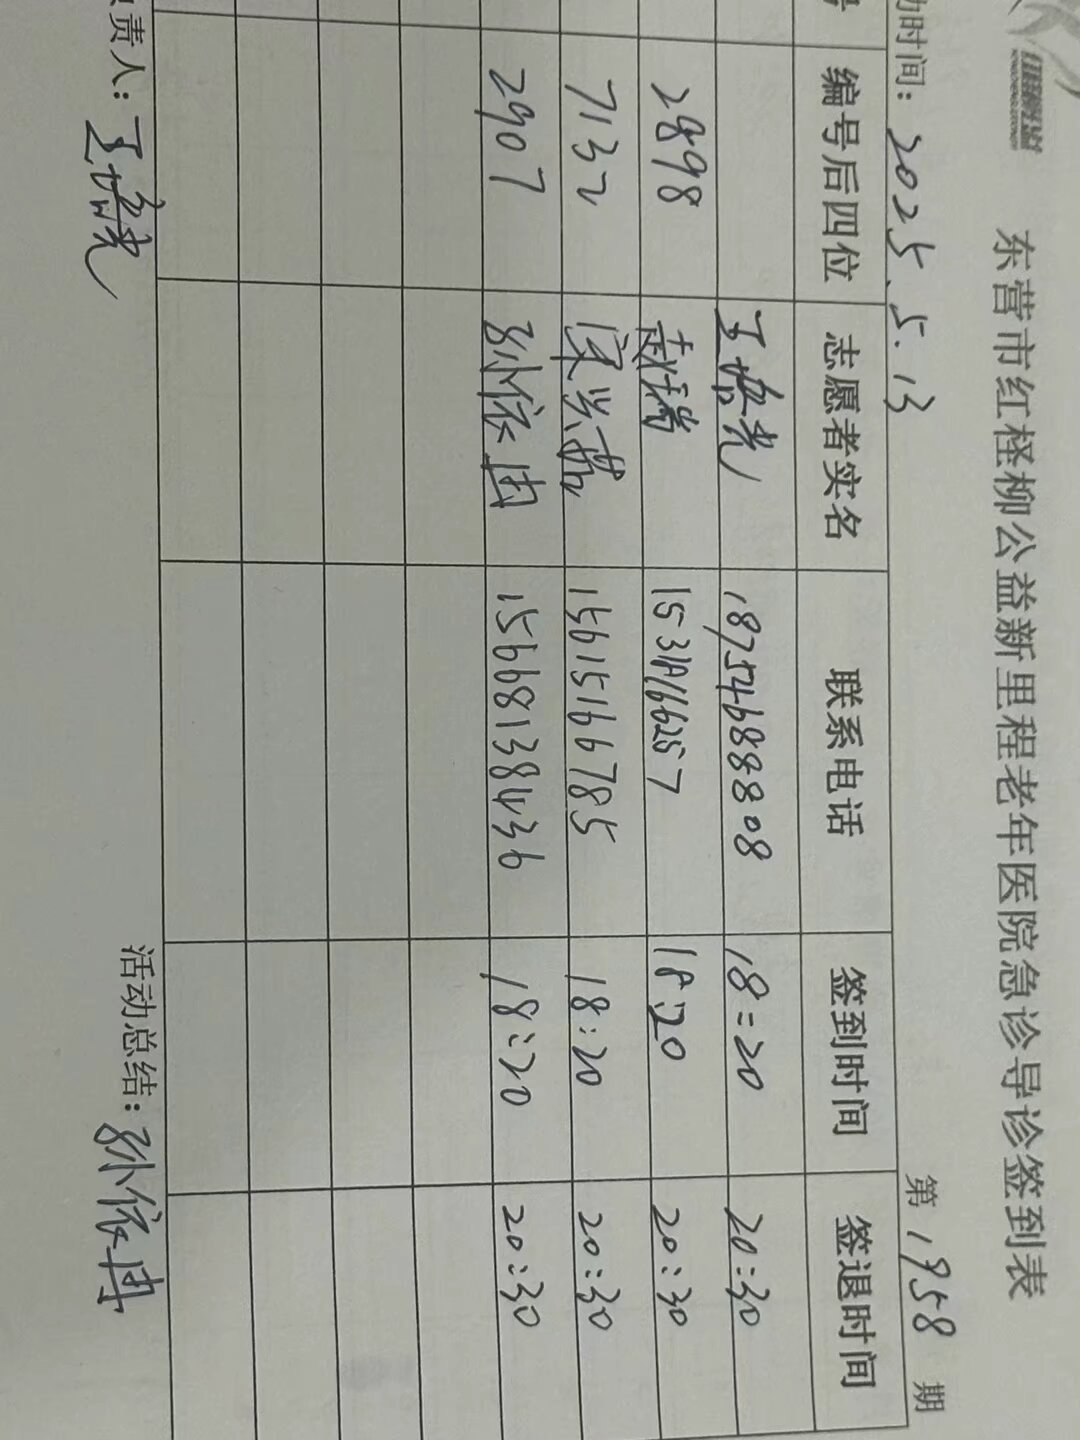 东营市红柽柳公益新里程老年医院急诊导诊签到表
动时间：2025.5.13 第1958期
号 编号后四位 志愿者实名 联系电话 签到时间 签退时间
18754688808 18:20 20:30
2898 赵瑞 15318166257 18:20 20:30
7132 15615166785 18:20 20:30
2907 孙依冉 15668138436 18:20 20:30
负责人： 活动总结：孙依冉